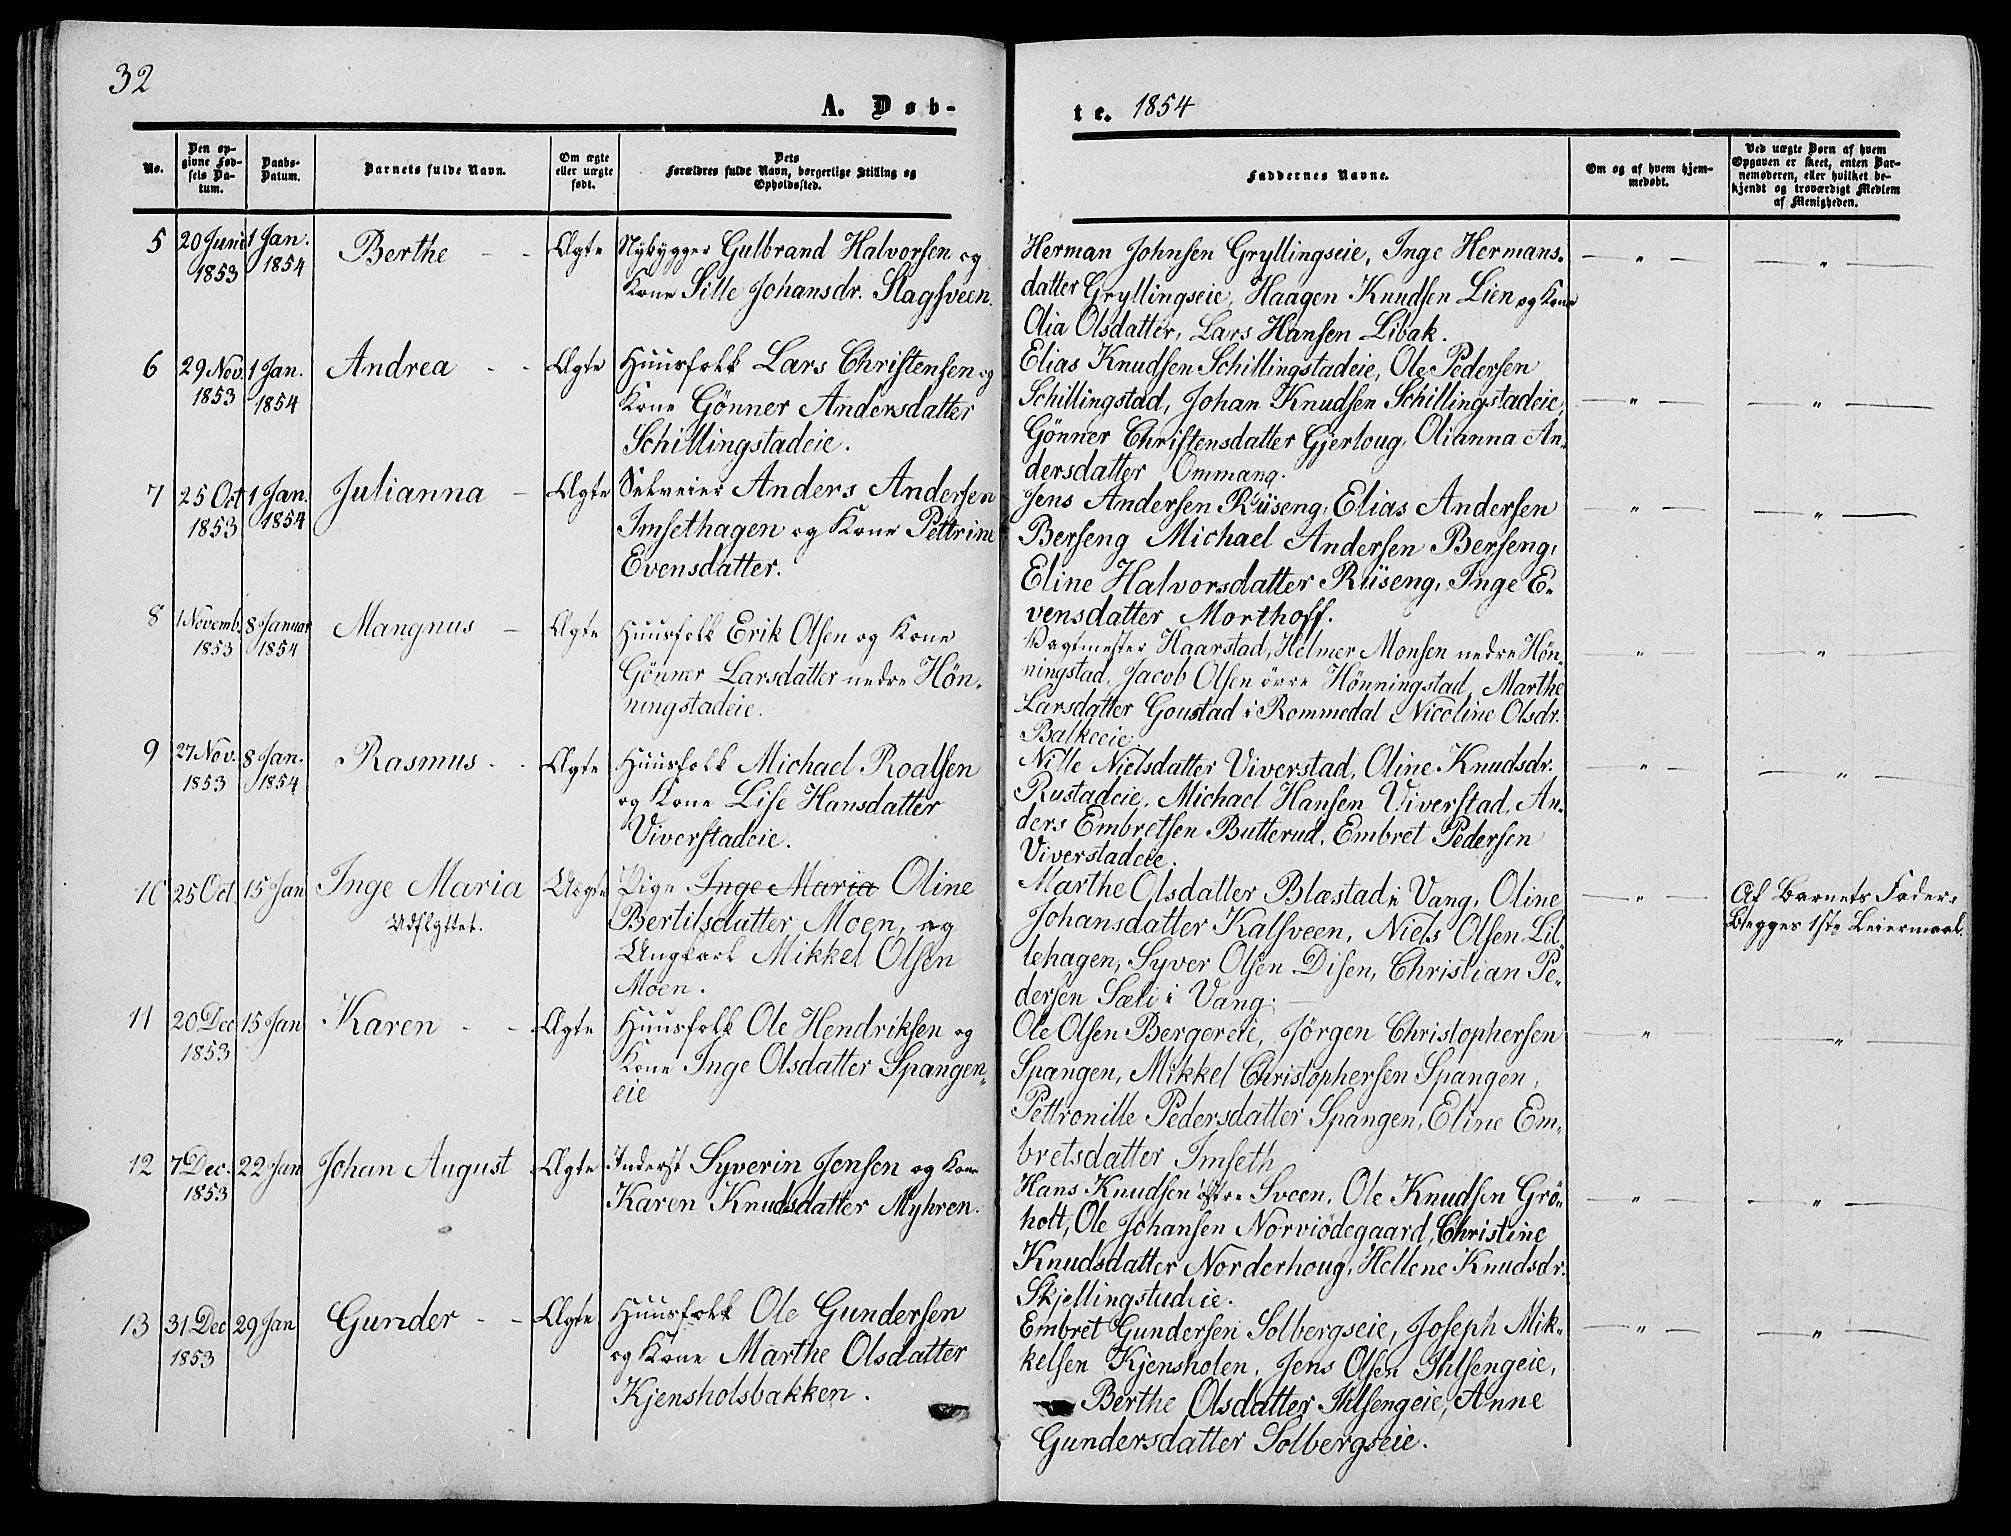 32
A. Døb-
te. 1854
No.
Den op-
givne Fød-
sels Da-
tum.
Daabs-
Datum.
Barnets fulde Navn.
Om ægte
eller uægte
født.
Dets
Forældres fulde Navn, borgerlige Stilling og
Opholdssted.
Faddernes Navne.
Om og af hvem hjem-
medøbt.
Ved uægte Børn af hvem
Opgaven er skeet, enten Bar-
nemoderen, eller hvilket be-
kjendt og troværdigt Medlem
af Menigheden.
5 20 Juni 1 Jan. Berthe - - Ægte Nybygger Gulbrand Halvorsen og
1853 1854 Kone Sille Johansdr. Slagsveen.
Herman Johnsen Gryllingseie, Inge Hermans-
datter Gryllingseie, Haagen Knudsen Lien og Kone
Olia Olsdatter, Lars Hansen Libak.
— " — — " —
6 29 Nov. 1 Jan. Andrea - - Ægte Huusfolk Lars Christensen og
1853 1854 Kone Gönner Andersdatter
Schillingstadeie.
Elias Knudsen Schillingstadeie, Ole Pedersen
Schillingstad, Johan Knudsen Schillingstadeie,
Gönner Christensdatter Gjerloug, Olianna An-
dersdatter Ommang.
— " — — " —
7 25 Oct 1 Jan. Julianna - Ægte Selveier Anders Andersen
1853 1854 Imsethagen og Kone Pettrine
Evensdatter.
Jens Andersen Rüseng, Elias Andersen
Berseng Michael Andersen Berseng,
Eline Halvorsdatter Rüseng, Inge E-
vensdatter Morthoff.
— " — — " —
8 1 Novemb. 8 Januar Mangnus - Ægte Huusfolk Erik Olsen og Kone
1853 1854 Gönner Larsdatter nedre Hön-
ningstadeie.
Vagtmester Haarstad, Helmer Monsen nedre Hön-
ningstad, Jacob Olsen övre Hönningstad, Marthe
Larsdatter Goustad i Rommedal Nicoline Olsdr.
Balkeeie.
— " — — " —
9 27 Nov. 8 Jan. Rasmus - - Ægte Huusfolk Michael Roalsen
1853 1854 og Kone Lise Hansdatter
Viverstadeie.
Nille Nielsdatter Viverstad, Oline Knudsdr.
Rustadeie, Michael Hansen Viverstad, An-
ders Embretsen Butterud, Embret Pedersen
Viverstadeie.
— " — — " —
10 25 Oct. 15 Jan Inge Maria Uægte Pige Inge Maria Oline
Udflyttet. Bertilsdatter Moen, og
Ungkarl Mikkel Olsen
Moen.
Marthe Olsdatter Blæstad i Vang, Oline
Johansdatter Kalsveen, Niels Olsen Lil-
lehagen, Syver Olsen Disen, Christian Pe-
dersen Sæli i Vang.
— " — Af Barnets Fader.
Begges 1ste Leiermaal.
11 20 Dec 15 Jan Karen - - Ægte Huusfolk Ole Hendriksen og
1853 Kone Inge Olsdatter Spangen-
eie
Ole Olsen Bergereie, Jörgen Christophersen
Spangen, Mikkel Christophersen Spangen,
Pettronille Pedersdatter Spangen, Eline Em-
bretsdatter Imseth
— " — — " —
12 7 Dec. 22 Jan Johan August Ægte Inderst Syverin Jensen og Kone
1853 Karen Knudsdatter Myhren.
Hans Knudsen östre Sveen, Ole Knudsen Grö-
holt, Ole Johansen Norviödegaard, Christine
Knudsdatter Norderhoug, Hellene Knudsdr.
Skjellingstadeie.
— " — — " —
13 31 Dec 29 Jan Gunder - - Ægte Huusfolk Ole Gundersen
1853 og Kone Marthe Olsdatter
Kjensholsbakken.
Embret Gundersen Solbergseie, Joseph Mik-
kelsen Kjensholen, Jens Olsen Ihlsengeie,
Berthe Olsdatter Ihlsengeie, Anne
Gundersdatter Solbergseie.
— " — — " —